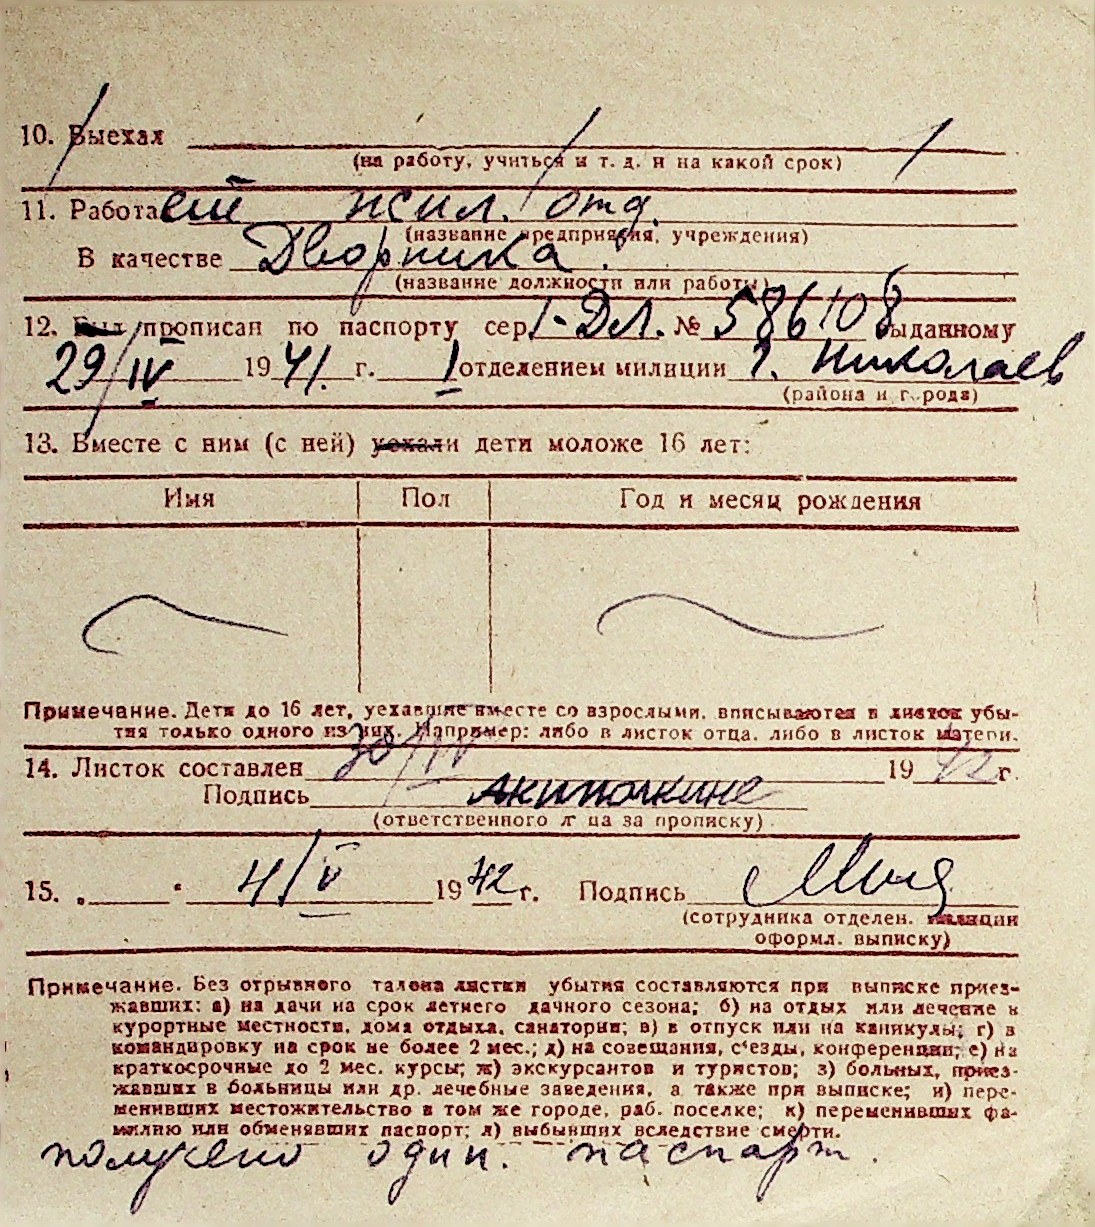 10. Выехал
(на работу, учиться и т. д. и на какой срок)
11. Работает жил. отд.
(название предприятия, учреждения)
В качестве Дворника.
(название должности или работы)
12. Был прописан по паспорту сер. 1-ДЛ. № 586108 выданному
29/IV 1941. г. I отделением милиции г. Николаев
(района и города)
13. Вместе с ним (с ней) уехали дети моложе 16 лет:
Имя Пол Год и месяц рождения
Примечание. Дети до 16 лет, уехавшие вместе со взрослыми, вписываются в листок убы-
тия только одного из них. Например: либо в листок отца, либо в листок матери.
14. Листок составлен 30/IV 1942 г.
Подпись
(ответственного лица за прописку)
15. „ “ 4/V 1942 г. Подпись
(сотрудника отделен. милиции
оформл. выписку)
Примечание. Без отрывного талона листки убытия составляются при выписке приез-
жавших: а) на дачи на срок летнего дачного сезона; б) на отдых или лечение в
курортные местности, дома отдыха, санатории; в) в отпуск или на каникулы; г) в
командировку на срок не более 2 мес.; д) на совещания, с'езды, конференции; е) на
краткосрочные до 2 мес. курсы; ж) экскурсантов и туристов; з) больных, приез-
жавших в больницы или др. лечебные заведения, а также при выписке; и) пере-
менивших местожительство в том же городе, раб. поселке; к) переменивших фа-
милию или обменявших паспорт; л) выбывших вследствие смерти.
получено один. паспорт.